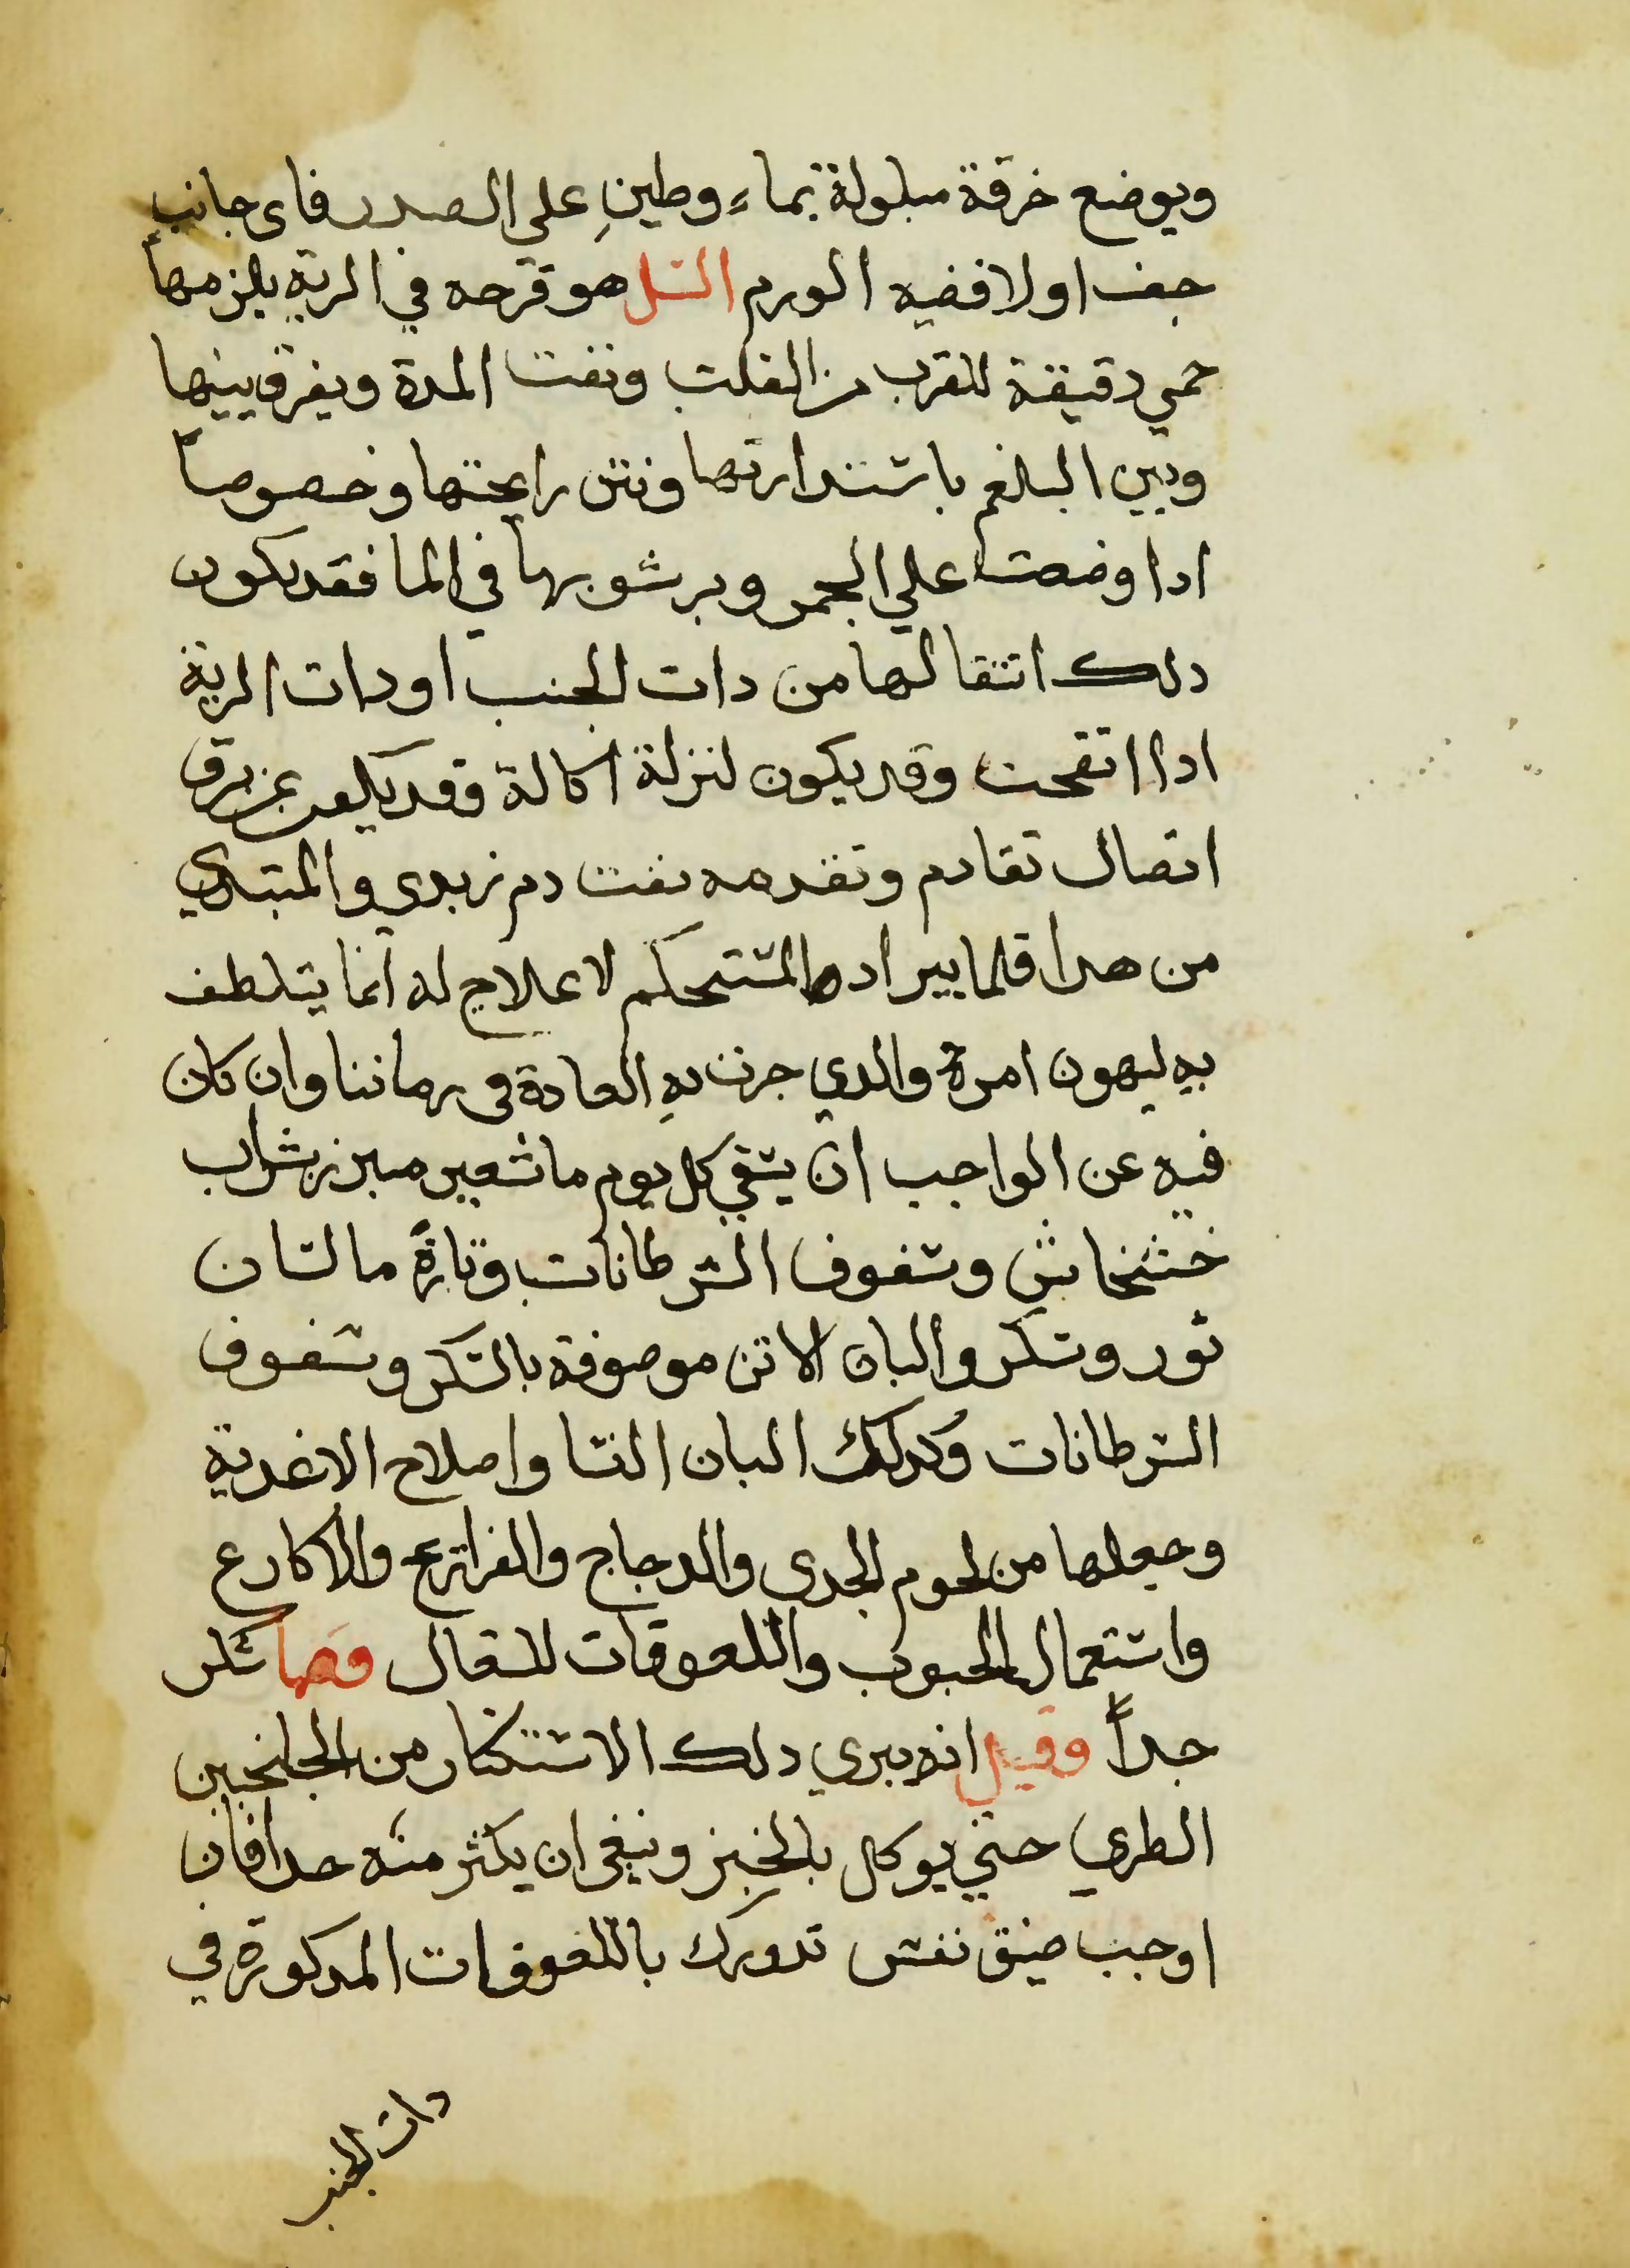 ويوضع خرقة مبلولة بماء وطين علي الصدر فاى جانب
جف اولا ففيه الورم السل هو قرحه في الرية يلزمها
حمي دقيقة للقرب من القلب ونفث المدة ويفرق بينها
وبين البلغم باستدارتها ونتن رايحتها وخصوصاً
ادا وضعت علي الجمر وبرسوبها في الما فقد يكون
دلك انتقالها من دات الجنب او دات الرية
ادا اتقحت وقد يكون لنزلة اكالة وقد يكون عن تفرق
اتصال تقادم وتقدمه نفث دم زبدي والمبتدي
من هدا قلما يبرا والمستحكم لا علاج له انما يتلطف
به ليهون امرة والدي جرت به العادة في زماننا وان كان
فيه عن الواجب ان يسقي كل يوم ما شعير مبزر بشراب
خشخاش وسفوف السرطانات وتارةً ما لسان
ثور وسكر والبان الاتن موصوفة بالسكر وسفوف
السرطانات وكدلك البان النسا واصلاح الاغدية
وجعلها من لحوم الجدي والدجاج والفراريج والاكارع
واستعمال الحبوب واللعوقات للسعال سكر
جداً وقيل انه يبري دلك الاستكثار من الجلنجبين
الطري حتي يوكل بالخبز وينبغي ان يكثر منه جدا فان
اوجب ضيق نفس تدورك باللعوقات المدكورة في
دات الجنب